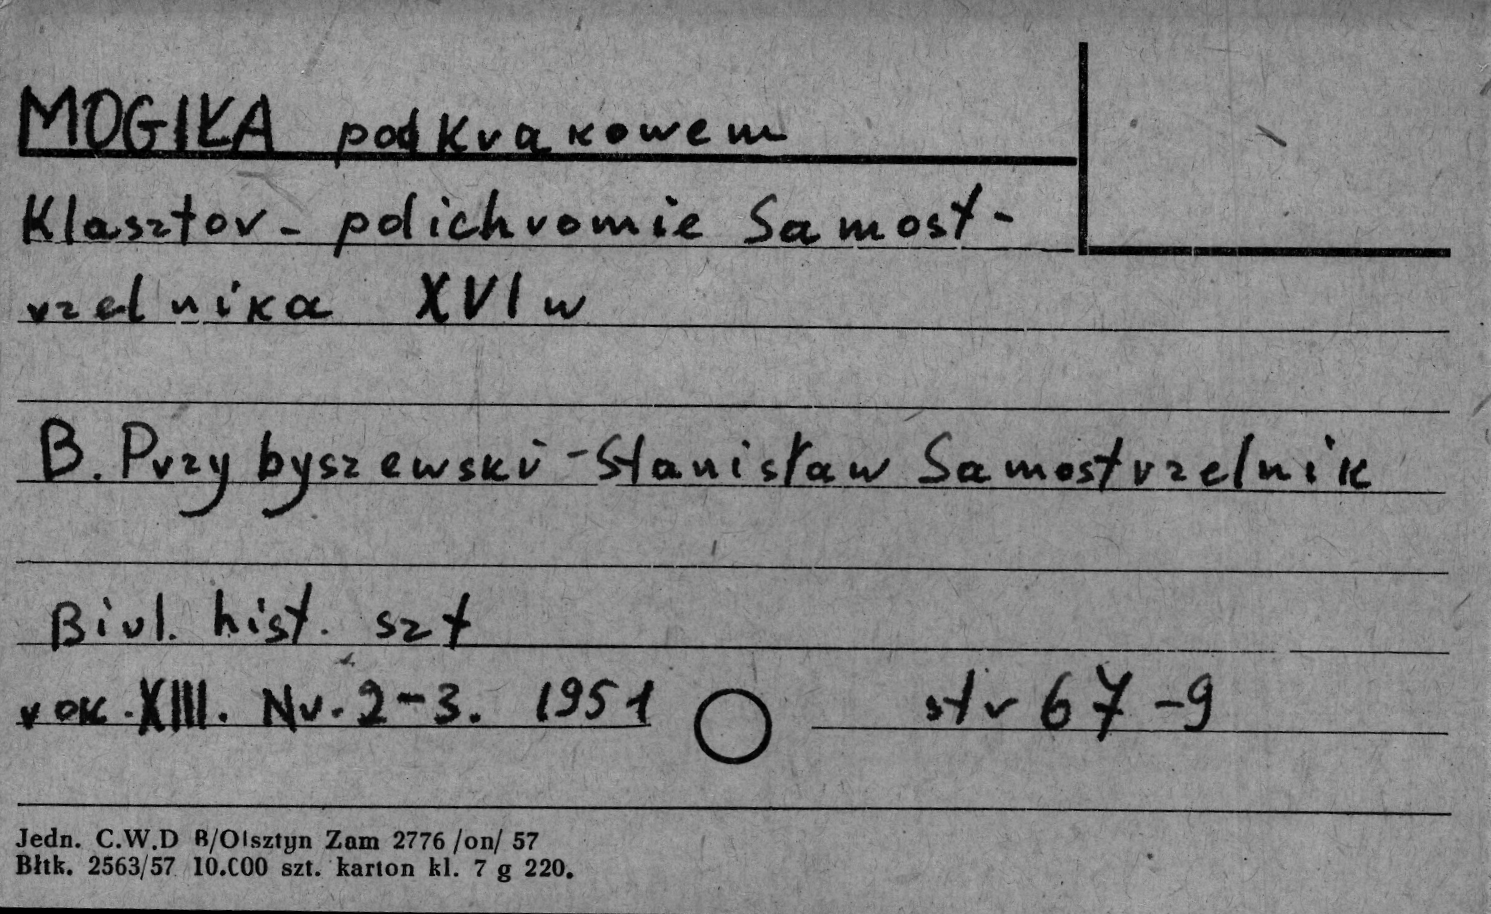 MOGIŁA pod Krakowem
Klasztor - polichromie Samost-
rzelnika XVI w
B. Przybyszewski - Stanisław Samostrzelnik
Biul. hist. szt
rok. XIII. Nr. 2-3. 1951 str 67-9
Jedn. C.W.D B/Olsztyn Zam 2776 /on/ 57
Błtk. 2563/57 10.000 szt. karton kl. 7 g 220.